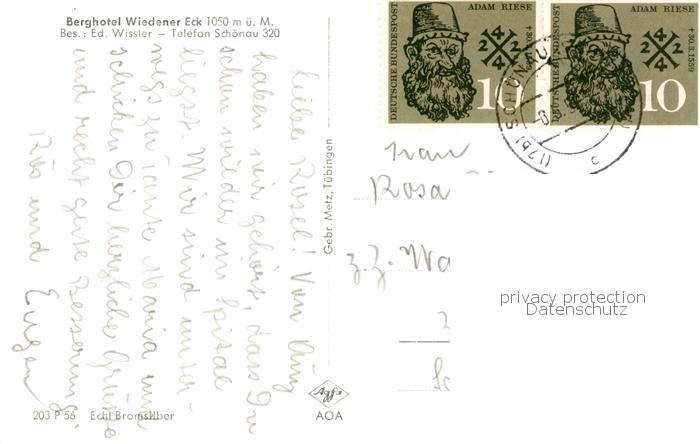 Berghotel Wiedener Eck 1050 m ü. M.
Bes.: Ed. Wissler – Telefon Schönau 320
Liebe Rosel! Von Anny
haben wir gehört, dass Du
schon wieder im Spital
liegst. Wir sind unter-
wegs zu Tante Maria und
schicken Dir herzliche Grüße
und recht gute Besserung.
und Eugen
203 P 56 Echt Bromsilber
Gebr. Metz, Tübingen
Agfa
AOA
DEUTSCHE BUNDESPOST
ADAM RIESE
+30.3.1559
10
DEUTSCHE BUNDESPOST
ADAM RIESE
+30.3.1559
10
(17b) SCHÖN
Frau
Rosa
z. Z. Wa
privacy protection
Datenschutz